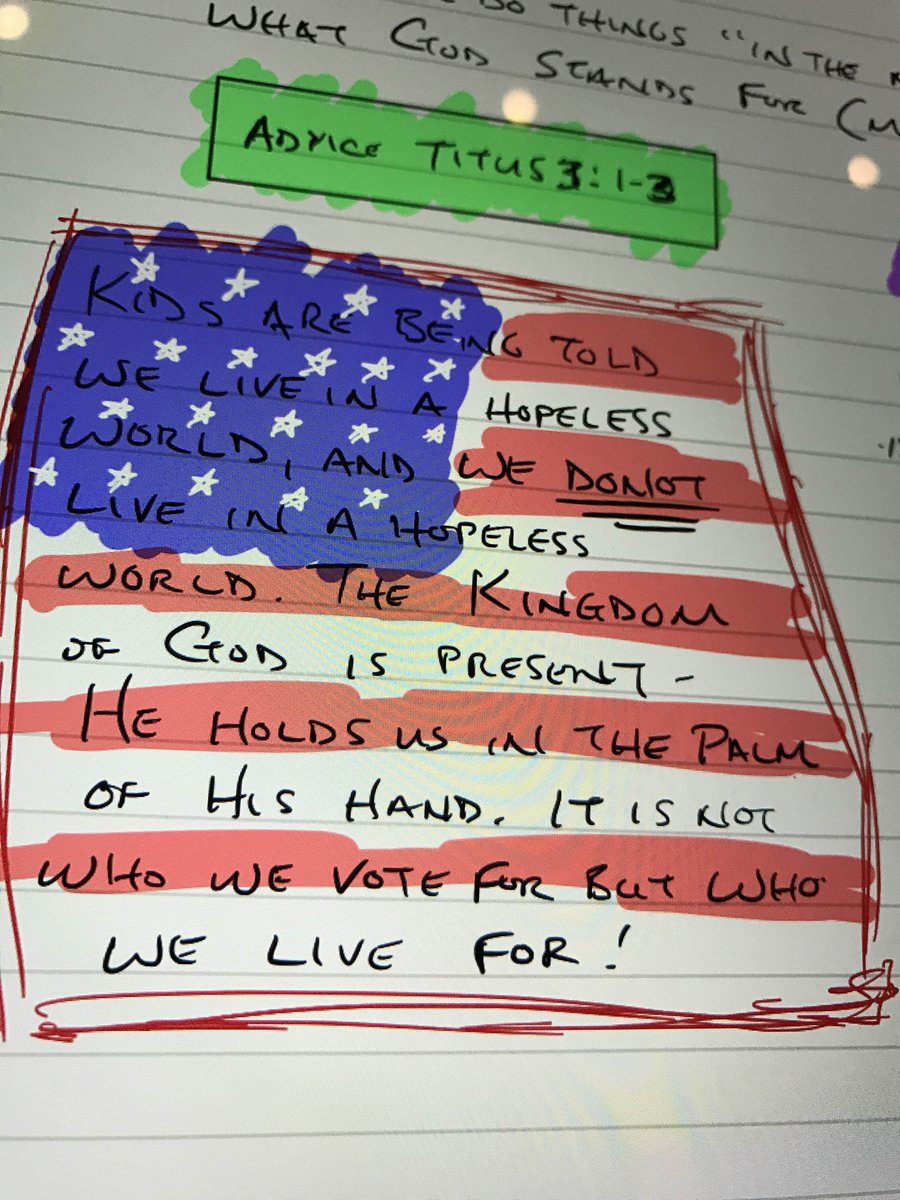 DO THINGS "IN THE
WHAT GOD STANDS FOR
ADVICE TITUS 3:1-3
KIDS ARE BEING TOLD
WE LIVE IN A HOPELESS
WORLD, AND WE DO NOT
LIVE IN A HOPELESS
WORLD. THE KINGDOM
OF GOD IS PRESENT -
HE HOLDS US IN THE PALM
OF HIS HAND. IT IS NOT
WHO WE VOTE FOR BUT WHO
WE LIVE FOR!